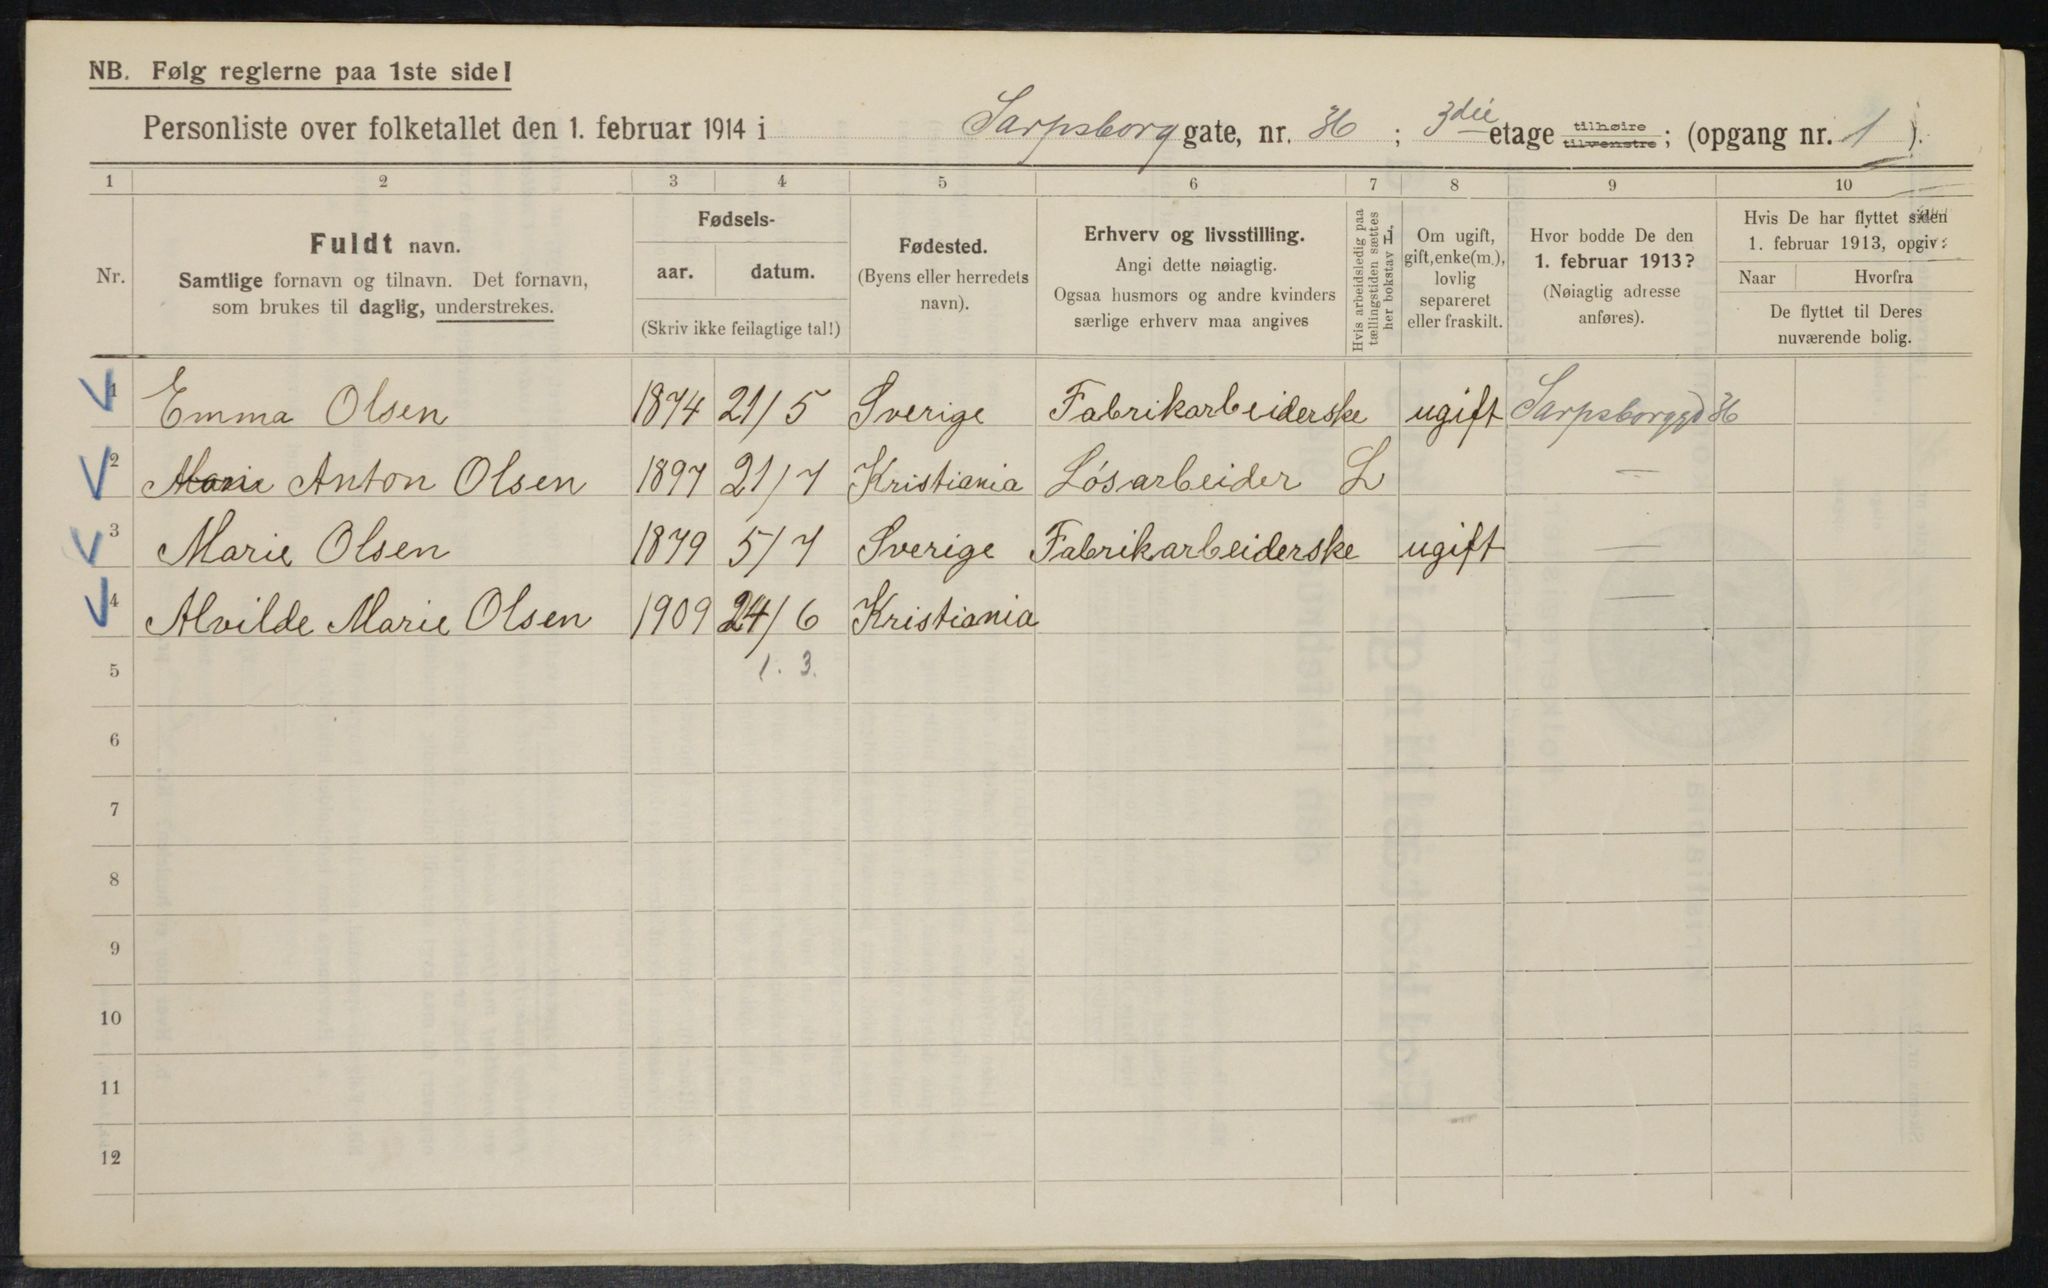 NB. Følg reglerne paa 1ste side!
Personliste over folketallet den 1. februar 1914 i Sarpsborg gate, nr. 36 ; 3die etage tilhøire tilvenstre; (opgang nr. 1 ).
1 2 3 4 5 6 7 8 9 10
Nr.
Fuldt navn.
Samtlige fornavn og tilnavn. Det fornavn,
som brukes til daglig, understrekes.
Fødsels-
aar. datum.
(Skriv ikke feilagtige tal!)
Fødested.
(Byens eller herredets
navn).
Erhverv og livsstilling.
Angi dette nøiagtig.
Ogsaa husmors og andre kvinders
særlige erhverv maa angives
Hvis arbeidsledig paa
tællingstiden sættes
her bokstav L.
Om ugift,
gift, enke(m.),
lovlig
separeret
eller fraskilt.
Hvor bodde De den
1. februar 1913?
(Nøiagtig adresse
anføres).
Hvis De har flyttet siden
1. februar 1913, opgiv:
Naar Hvorfra
De flyttet til Deres
nuværende bolig.
1 Emma Olsen 1874 21/5 Sverige Fabrikarbeiderske ugift Sarpsborggd 36
2 Marie Anton Olsen 1897 21/7 Kristiania Lósarbeider L —
3 Marie Olsen 1879 5/7 Sverige Fabrikarbeiderske ugift —
4 Alvilde Marie Olsen 1909 24/6 Kristiania —
5 1. 3.
6
7
8
9
10
11
12